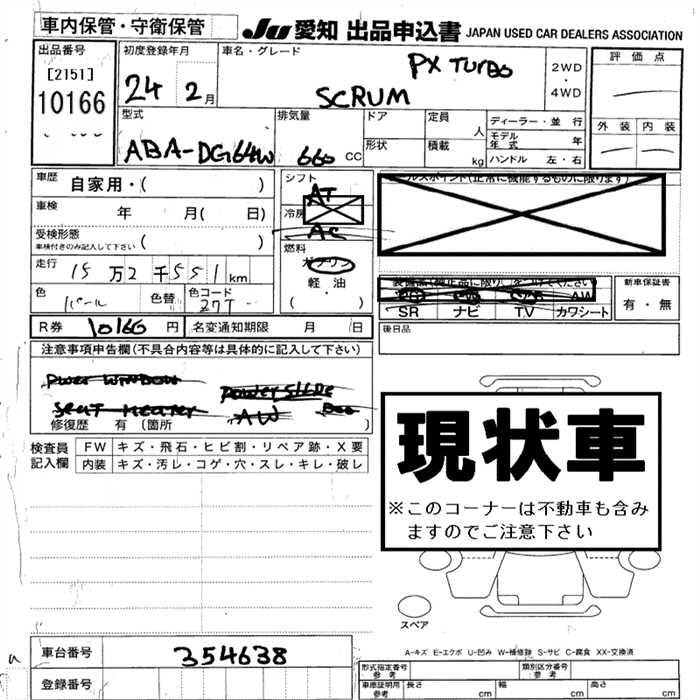 車内保管・守衛保管
JU 愛知 出品申込書 JAPAN USED CAR DEALERS ASSOCIATION
出品番号
[2151]
10166
初度登録年月
24 2月
車名・グレード
PX TURBO
SCRUM
2WD
・
4WD
評価点
外装 内装
型式
ABA-DG64W
排気量
660 CC
ドア
形状
定員 人
積載 kg
ディーラー・並行
モデル年式 年
ハンドル 左・右
車歴 自家用・( )
車検 年 月( 日)
受検形態
車検付きのみ記入して下さい ( )
走行 15万2千551km
色 パール 色替 色コード Z7T
シフト
AT
冷房
AC
燃料
ガソリン
軽油
( ・ )
セールスポイント(正常に機能するものに限ります)
SR ナビ TV カワシート
AW
新車保証書
有・無
後日品
R券 10166 円 名変通知期限 月 日
注意事項申告欄(不具合内容等は具体的に記入して下さい)
POWER WINDOW
POWER SLIDE
SEAT HEATER
AW
修復歴 有 〔箇所 〕
検査員
記入欄
FW キズ・飛石・ヒビ割・リペア跡・X要
内装 キズ・汚レ・コゲ・穴・スレ・キレ・破レ
現状車
※このコーナーは不動車も含み
ますのでご注意下さい
スペア
A-キズ E-エクボ U-凹み W-補修跡 S-サビ C-腐食 XX-交換済
車台番号 354638
登録番号
形式指定番号
参考
類別区分番号
参考
車庫証明用
参考
長さ cm 幅 cm 高さ cm